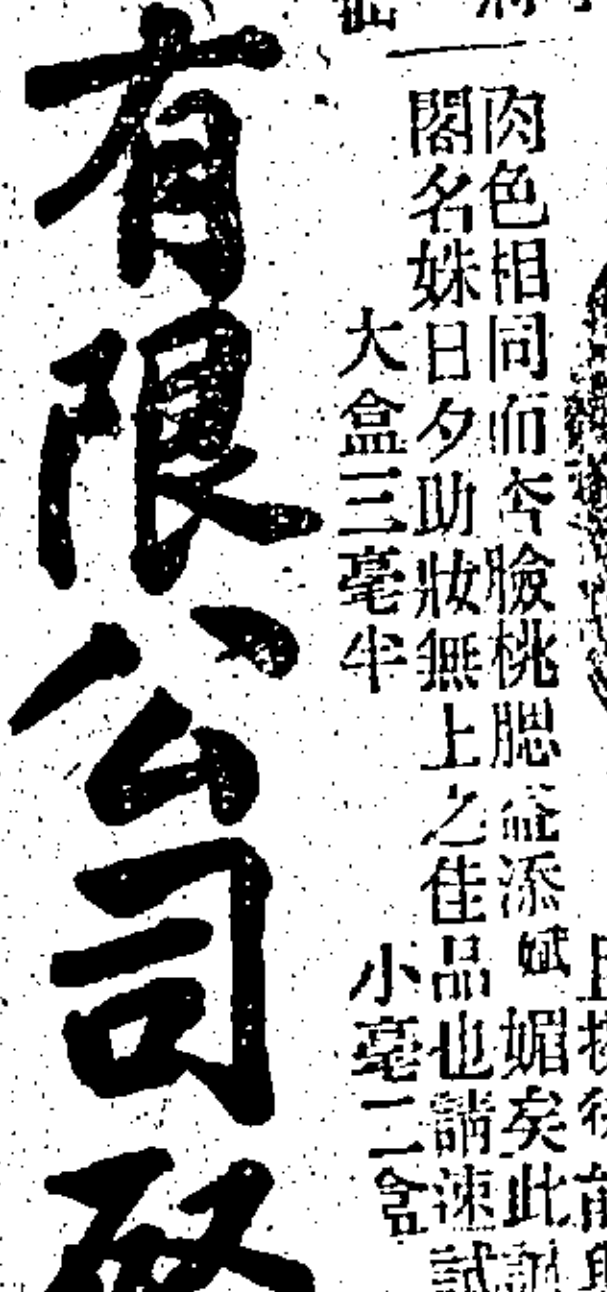 肉色相同而杏臉桃腮益添斌媚矣此誠
閣名姝日夕助妝無上之佳品也請速試
大盒三毫半
小毫二盒
有限公司啟